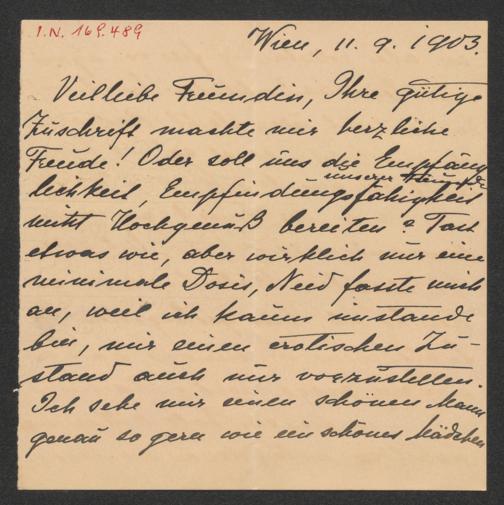 I.N. 169.489
Wien, 11. 9. 1903.
Vielliebe Freundin, Ihre gütige
Zuschrift machte mir herzliche
Freude! Oder soll uns die Empfäng
lichkeit, Empfindungsfähigkeit unserer
nicht Hochgenuß bereiten? Fast
etwas wie, aber wirklich nur eine
minimale Dosis, Neid fasste mich
an, weil ich kaum imstande
bin, mir einen erotischen Zu-
stand auch nur vorzustellen.
Ich sehe mir einen schönen Mann
genau so gern wie ein schönes Mädchen